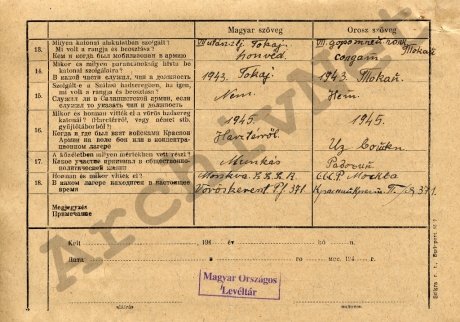 Magyar szöveg
Orosz szöveg
13. Milyen katonai alakulatban szolgált?
Mi volt a rangja és beosztása?
Кем и когда был мобилизован в армию
Tokaj.
honvéd.
Солдат
Токай
14. Mikor és milyen parancsnokság hívta be
katonai szolgálatra?
В какой части служил, чин и должность
1943. Tokaj
1943. Токай.
15. Szolgált-e a Szálasi hadseregben, ha igen,
mi volt a rangja és beosztása?
Служил ли в Салашистской армии, если
служил то указать чин и должность
Nem.
Нем.
16. Mikor és honnan vitték el a vörös hadsereg
katonái? (Harctérről, vagy német stb.
gyűjtőtáborból?)
Когда и где был взят войсками Красной
Армии на поле боя или в концентрационном
лагере
1945.
Harctérről.
1945.
Из
17. A közéletben milyen mértékben vett részt?
Какое участие принимал в общественной
политической жизни
Munkás
Рабочий
18. Honnan és mikor vitték el?
В каком лагере находится в настоящее
время
Moszkva.
Vöröskereszt P/f 371.
СССР. Москва
371.
Megjegyzés
Примечание
Kelt 194 év hó n.
Дата го мес. 194 г.
Magyar Országos
Levéltár
ArchivNet